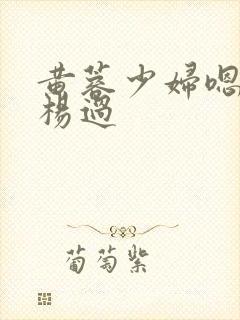 黄蓉少婦嗯
楊過
葡萄紫